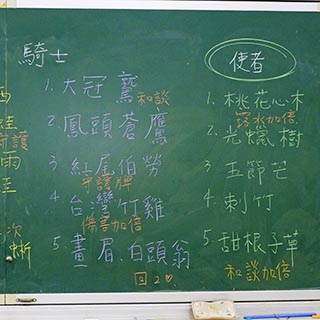 騎士
1. 大冠鷲
和談
2. 鳳頭蒼鷹
3. 紅尾伯勞
守護牌
4 台灣竹雞
傷害加倍
5. 畫眉、白頭翁
使者
1. 桃花心木
2. 光蠟樹
3 五節芒
4. 刺竹
5. 甜根子草
和談加倍
雨
次
蜥